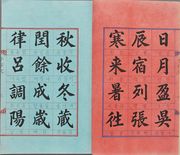 日月盈昃
辰宿列張
寒来暑往
秋收冬藏
閏餘成歲
律呂調陽